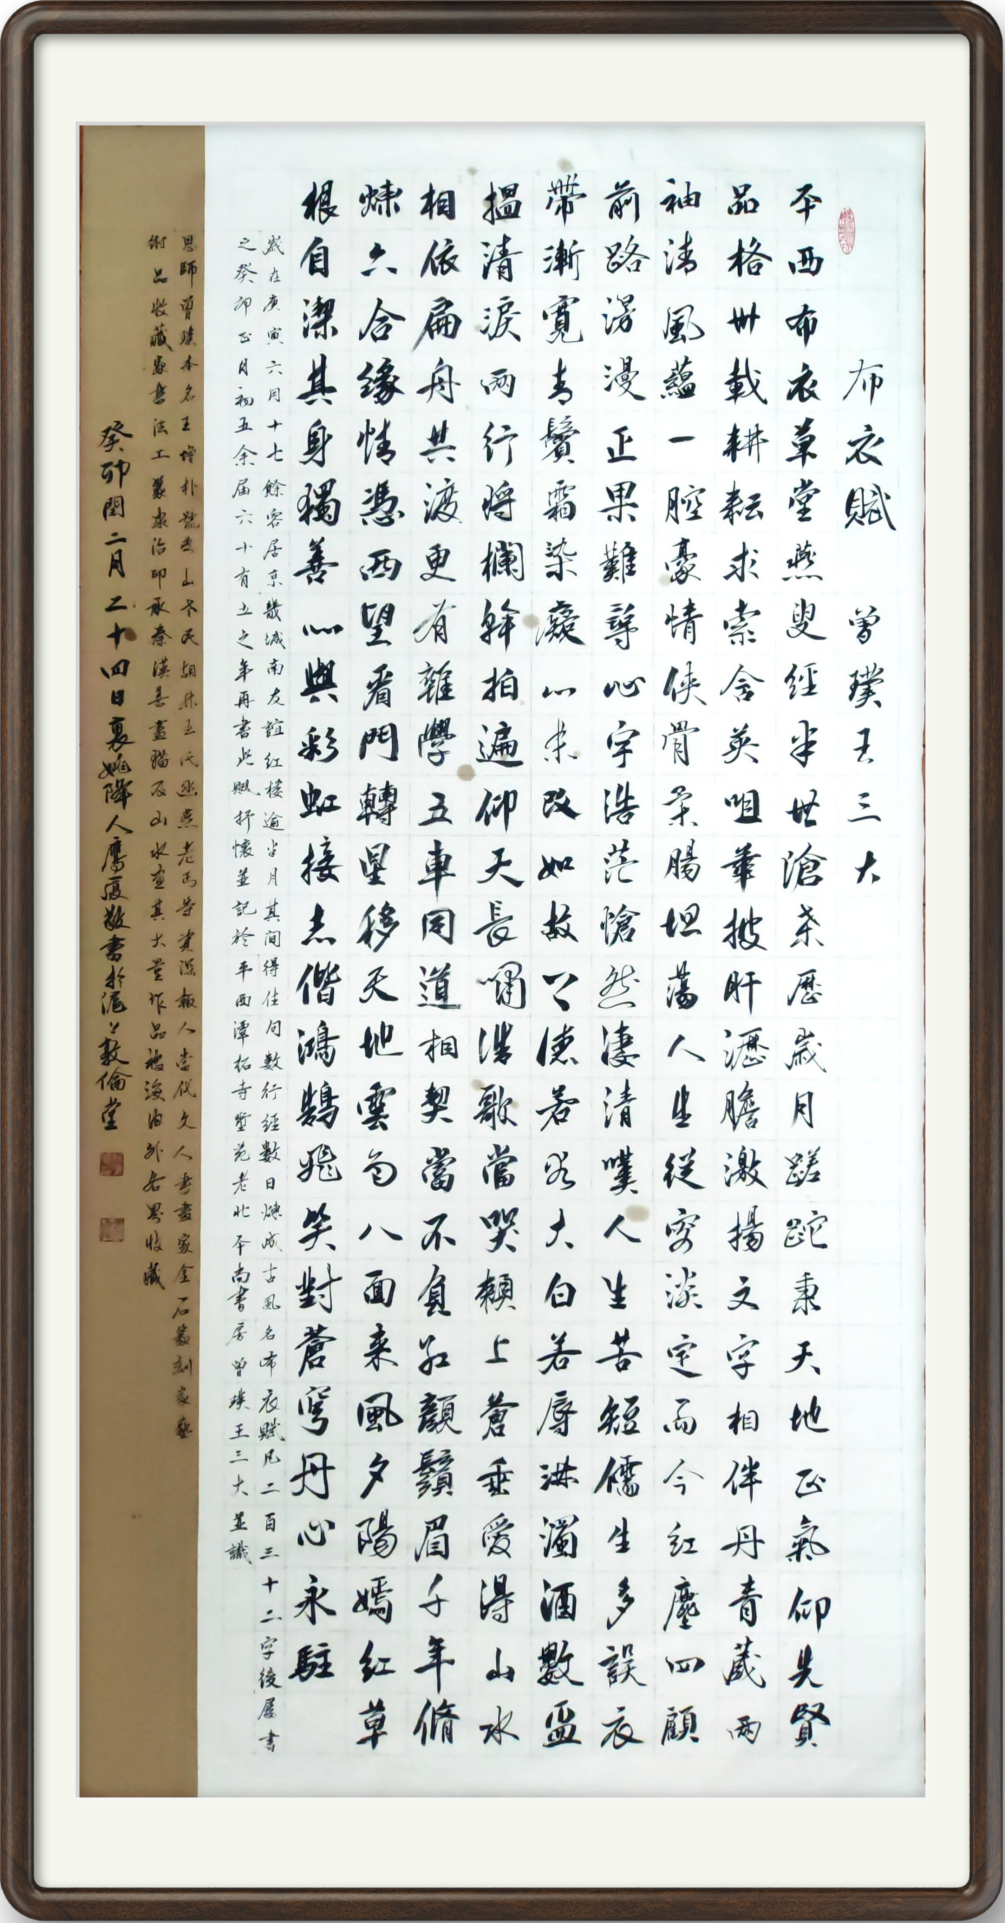 布衣賦 曾璞王三大
平西布衣草堂燕叟經半世滄桒歷歲月蹉跎秉天地正氣仰先賢
品格卅載耕耘求索含英咀華披肝瀝膽激揚文字相伴丹青藏兩
袖清風蘊一腔豪情俠骨柔腸坦蕩人生從容淡定而今紅塵四顧
前路漫漫正果難尋心宇浩茫愴然淒清嘆人生苦短儒生多誤衣
帶漸寬青鬢霜染癡心未改如故上德若谷大白若辱淋濁酒數盃
揾清淚兩行將欄幹拍遍仰天長嘯浩歌當哭賴上蒼垂愛得山水
相依扁舟共渡更有雜學五車同道相契當不負紅顏鬚眉千年脩
煉六合緣情憑西望看門轉星移天地雲勾八面来風夕陽嫣紅草
根自潔其身獨善心與彩虹接志偕鴻鵠飛笑對蒼穹丹心永駐
歲在庚寅六月十七餘客居京畿城南友誼紅樓逾半月其间得佳句數行經數日煉成古風名布衣賦凡二百三十二字後屢書
之癸卯正月初五余届六十有五之年再書此賦抒懷並記於平西潭柘寺墅苑老北平南書房曾璞王三大並識
恩師曾璞本名王增朴號老山布民胡林王氏燕熹老丐等資深報人當代文人書畫家金石篆刻家藝
術品收藏家書法工篆隶治印承秦漢善畫猫及山水畫其大量作品被海内外各界收藏
癸卯閏二月二十四日襄姚降人鷹厦敬書於滬上敦倫堂